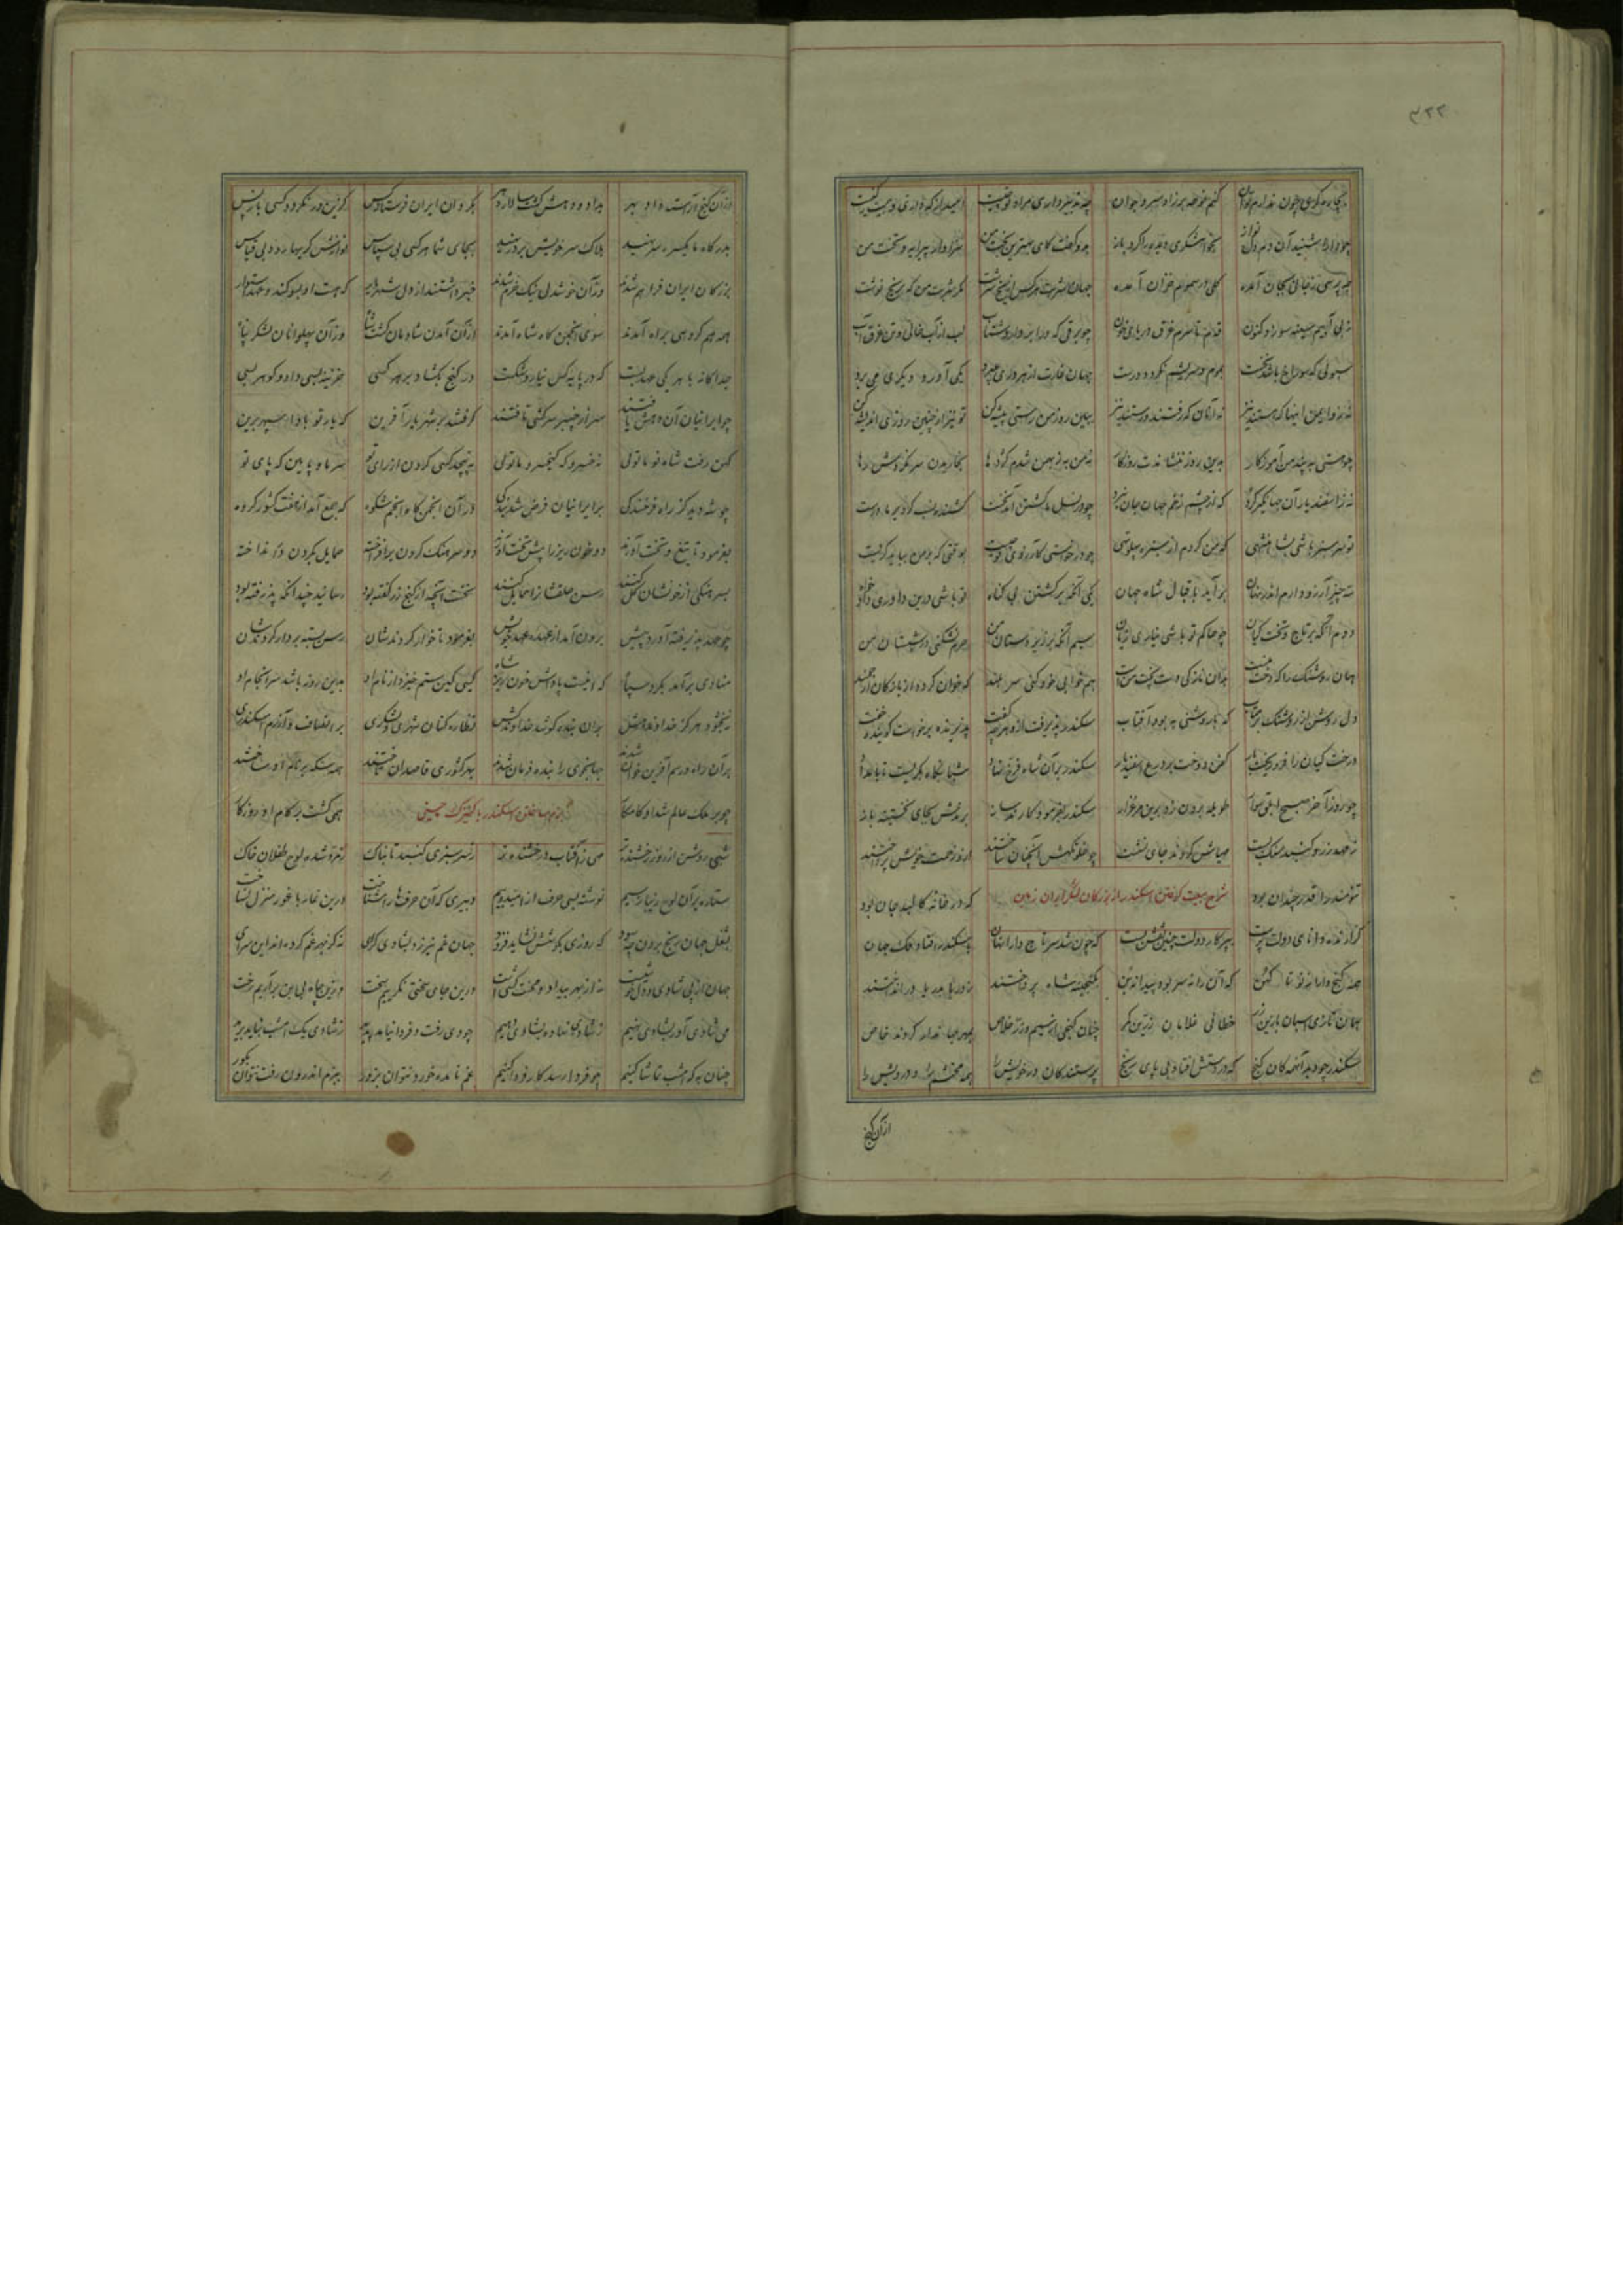 بیچاره گری چون ندارم توان کنم نوحه بر زاد سرو جوان چه تدبیر داری مراد تو چیست امید از که داری و بیمت ز کیست
چو دارا شنید آن دم دلنواز بخواهشگری دیده را کرد باز بدو گفت کای بهترین بخت من سزاوار پیرایه و تخت من
چه پرسی ز جانی بجان آمده گلی در سموم خزان آمده جهان شربت هر کس از یخ سرشت مگر شربت من که بر یخ نوشت
ز بی آبیم سینه سوزد کنون قدم تا سرم غرق دریای خون چو برقی که در ابر دارد شتاب لب از آب خالی و تن غرق آب
سبوئی که سوراخ باشد نخست بموم و سریشم نگردد درست جهان غارت از هر دری میبرد یکی آورد دیگری می برد
نه زو ایمن اینها که هستند نیز نه آنان که رفتند رستند نیز ببین روز من راستی پیشه کن تو نیز از چنین روزی اندیشه کن
چو هستی به پند من آموزگار بدین روز ننشاندت روزگار نه من به ز بهمن شدم کاژدها بخاریدن سر نکردش رها
نه ز اسفندیار آن جهانگیر گرد که از چشم زخم جهان جان نبرد چو در نسل ما کشتن آمد نخست کشنده نسب کرد بر ما درست
تو سرسبز باشی بشاهنشهی که من کردم از سبزه پهلو تهی چو درخواستی کآرزوی تو چیست بوقتی که بر من بباید گریست
سه چیز آرزو دارم اندر نهان برآید باقبال شاه جهان یکی آنکه بر کشتن بی گناه تو باشی درین داوری دادخواه
دوم آنکه بر تاج و تخت کیان چو حاکم تو باشی نیاری زیان سیم آنکه بر زیردستان من حرم نشکنی در شبستان من
همان روشنک را که دخت منست بدان نازکی دست پخت منست بهم خوابی خود کنی سر بلند که خوان گردد از نازکان ارجمند
دل روشن از روشنک بر متاب که با روشنی به بود آفتاب سکندر پذیرفت ازو هر چه گفت پذیرنده برخواست گوینده خفت
درخت کیان را فرو ریخت بار کفن دوخت بر درع اسفندیار سکندر بر آن شاه فرخ نژاد شبانگاه بگریست تا بامداد
چو روز آخر صبح ابلق سوار طویله برون زد برین مرغزار سکندر بفرمود کارند ساز برندش بجای نخستینه باز
ز مهد زر و گنبد سنگ بست مهیاش کردند جای نشست چو خلوتگهش آنچنان ساختند ازو زحمت خویش پرداختند
تنومند را قدر چندان بود که در خانه کالبد جان بود
بیعت گرفتن اسکندر از بزرگان لشکر ایران زمین
گزارنده دانای دولت پرست بپرگار دولت چنین نقش بست که چون شد سر تاج دارا نهان باسکندر افتاد ملک جهان
همه گنج دارا ز نو تا کهن که آن را نه سر بود پیدا نه بن بگنجینه شاه پرداختند ز دریا بدریا در انداختند
همان تازی اسبان با زین زر خطائی غلامان زرین کمر چنان گنجی از سیم و زر خلاص بمهر جهاندار کردند خاص
سکندر چو دید آنهمه کان گنج که در دستش افتاد بی پای رنج پرستندگان در خویش را همه محتشم را و درویش را
از آن گنج
از آن گنج آراسته داد بهر بداد و دهش گشت سالار دهر بگردان ایران فرستاد کس کزین در نگردد کسی باز پس
بدرگاه ما یکسره سر نهید هلاک سر خویش بر در نهید بجای شما هر کسی بی سپاس نوازش گریها رود بی قیاس
بزرگان ایران فراهم شدند وز آن خوشدلی نیک خرم شدند خبر داشتند از دل شهریار که هست او بسوگند و عهد استوار
همه هم گروهی براه آمدند سوی انجمن گاه شاه آمدند از آن آمدن شاه مان گشت شاه وز آن پهلوانان لشکر پناه
جداگانه با هر یکی عهد بست که در پایه کس نیارد شکست در گنج بگشاد بر هر کسی خزینه بسی داد و گوهر بسی
چو ایرانیان آن دهش یافتند سر از چنبر سرکشی تافتند گرفتند بر شهریار آفرین که یار تو بادا سپهر برین
کهن رفت شاه نو ما توئی نه خسرو که کیخسرو ما توئی نپیچد کسی گردن از رای تو سر ما و پایین گه پای تو
چو شه دید کز راه فرخندگی بر ایرانیان فرض شد بندگی در آن انجمن گاه انجم شکوه که جمع آمد از هفت کشور گروه
بفرمود تا تیغ و تخت آورند دو خون ریز را پیش تخت آورند دو سرهنگ گردن برافراخته حمایل بگردن در انداخته
نخست آنچه از گنج زر گفته بود رسانید چندانکه پذرفته بود
چو عهد پذیرفته آورد پیش برون آمد از عهده عهد خویش بفرمود تا خوار کردندشان رسن بسته بر دار کردندشان
منادی برآمد بگرد سپاه که اینست پاداش خون ریز شاه کسی کین ستم خیزد از نام او بدین روز باشد سرانجام او
نبخشود هرگز خداوند هش بر آن بنده کو شد خداوند کش نظاره کنان شهری و لشکری بر انصاف و آزرم اسکندری
بر آن راه و رسم آفرین خوان شدند جهانجوی را بنده فرمان شدند
چو بر ملک عالم شد او کامگار همی گشت بر کام او روزگار
بزم ساختن اسکندر با کنیزک چینی
شبی روشن از روز رخشنده تر می ز آفتاب درخشنده تر ز سرسبزی گنبد تابناک زمرد شده لوح طفلان خاک
ستاره بر آن لوح زیبا ز سیم نوشته بسی حرف از امید و بیم دبیری که آن حرفها را شناخت درین غار با غور منزل نساخت
بشغل جهان رنج بردن چه سود که روزی بکوشش نشاید فزود جهان غم نیرزد بشادی گرای نه کز بهر غم کرده‌اند این سرای
جهان از پی شادی و دلخوشیست نه از بهر بیداد و محنت کشیست درین جای سختی نگیریم سخت ازین چاه بی بن برآریم رخت
می شادی آور بشادی نهیم ز شادی نهاده بشادی دهیم چو دی رفت و فردا نیامد پدید ز شادی یک امشب نباید برید
چنان به که امشب تماشا کنیم چو فردا رسد کار فردا کنیم غم نامده خورد نتوان بزور ببزم اندرون رفت نتوان بگور